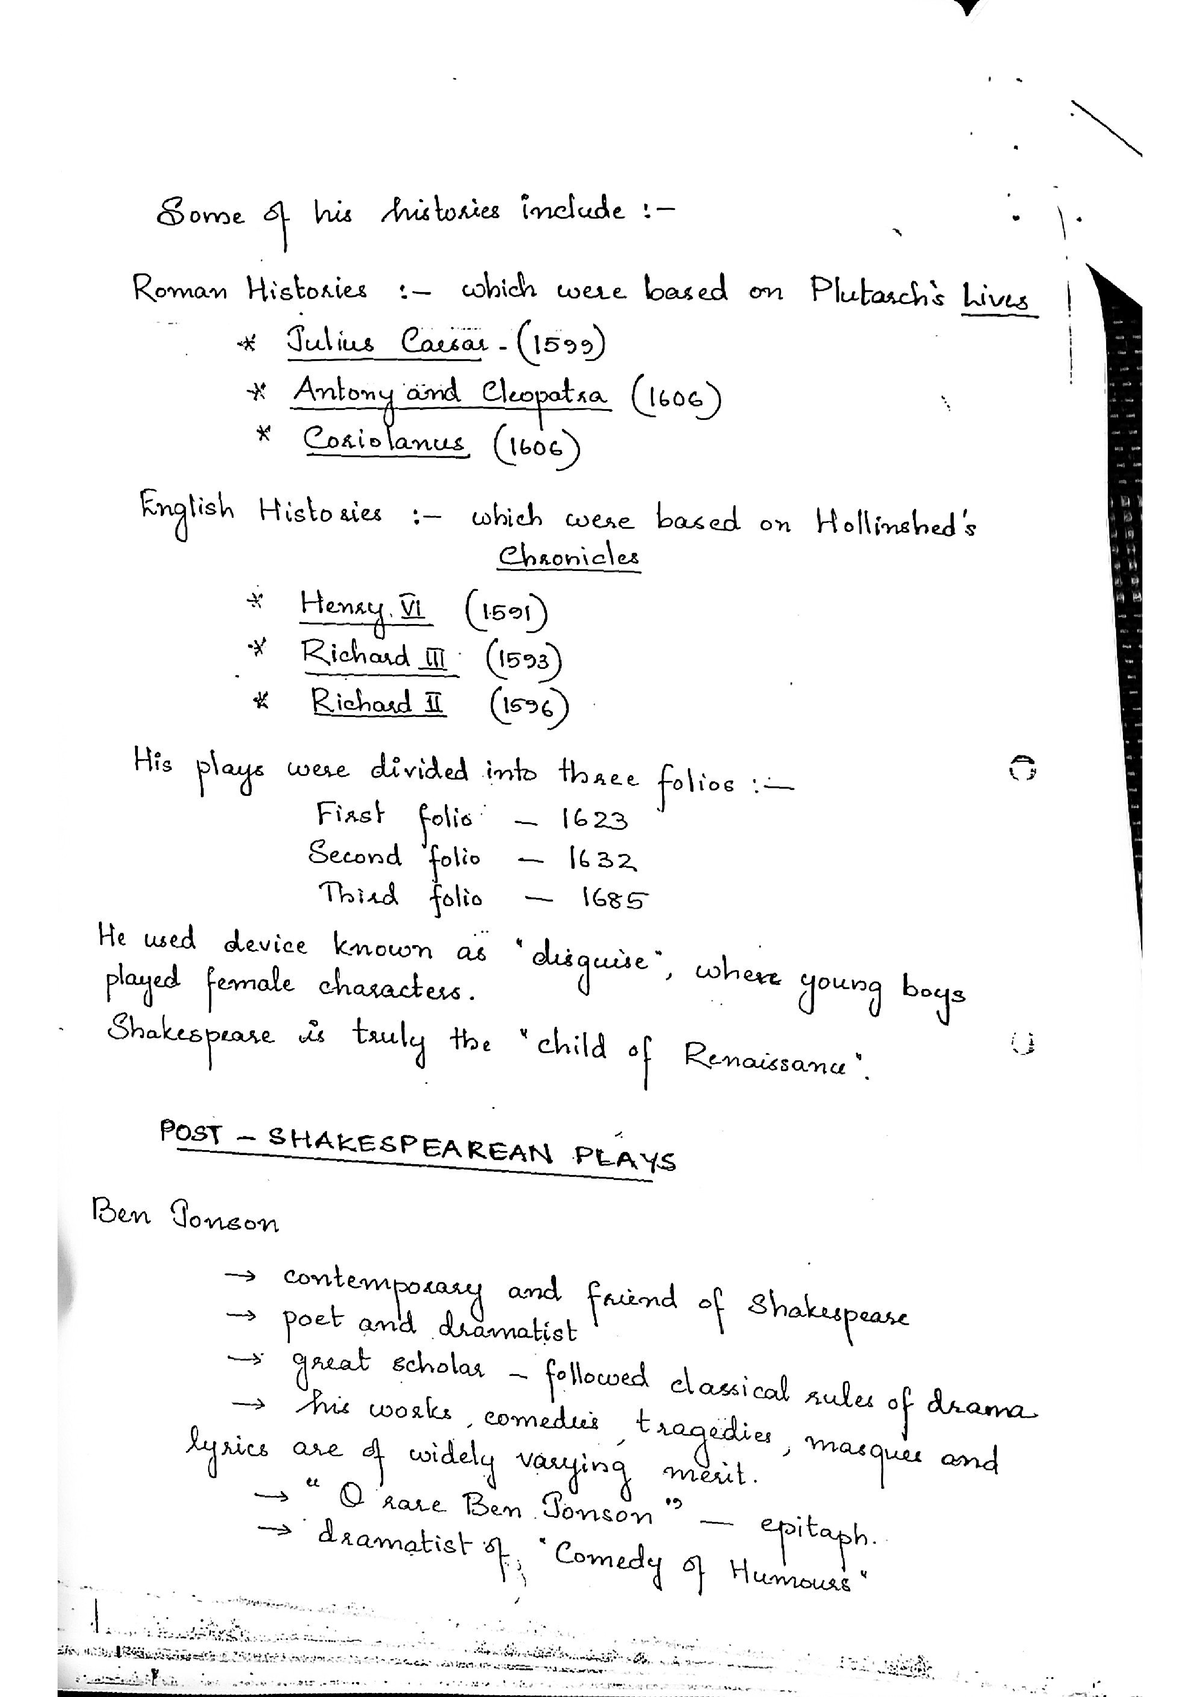 Some of his histories include :-
Roman Histories :- which were based on Plutarch's Lives
* Julius Caesar - (1599)
* Antony and Cleopatra (1606)
* Coriolanus (1606)
English Histories :- which were based on Hollinshed's
Chronicles
* Henry VI (1591)
* Richard III (1593)
* Richard II (1596)
His plays were divided into three folios :-
First folio - 1623
Second folio - 1632
Third folio - 1685
He used device known as "disguise", where young boys
played female characters.
Shakespeare is truly the "child of Renaissance".
POST - SHAKESPEAREAN PLAYS
Ben Jonson
→ contemporary and friend of Shakespeare
→ poet and dramatist
→ great scholar - followed classical rules of drama
→ his works, comedies, tragedies, masques and
lyrics are of widely varying merit.
→ "O rare Ben Jonson" - epitaph.
→ dramatist of, "Comedy of Humours"